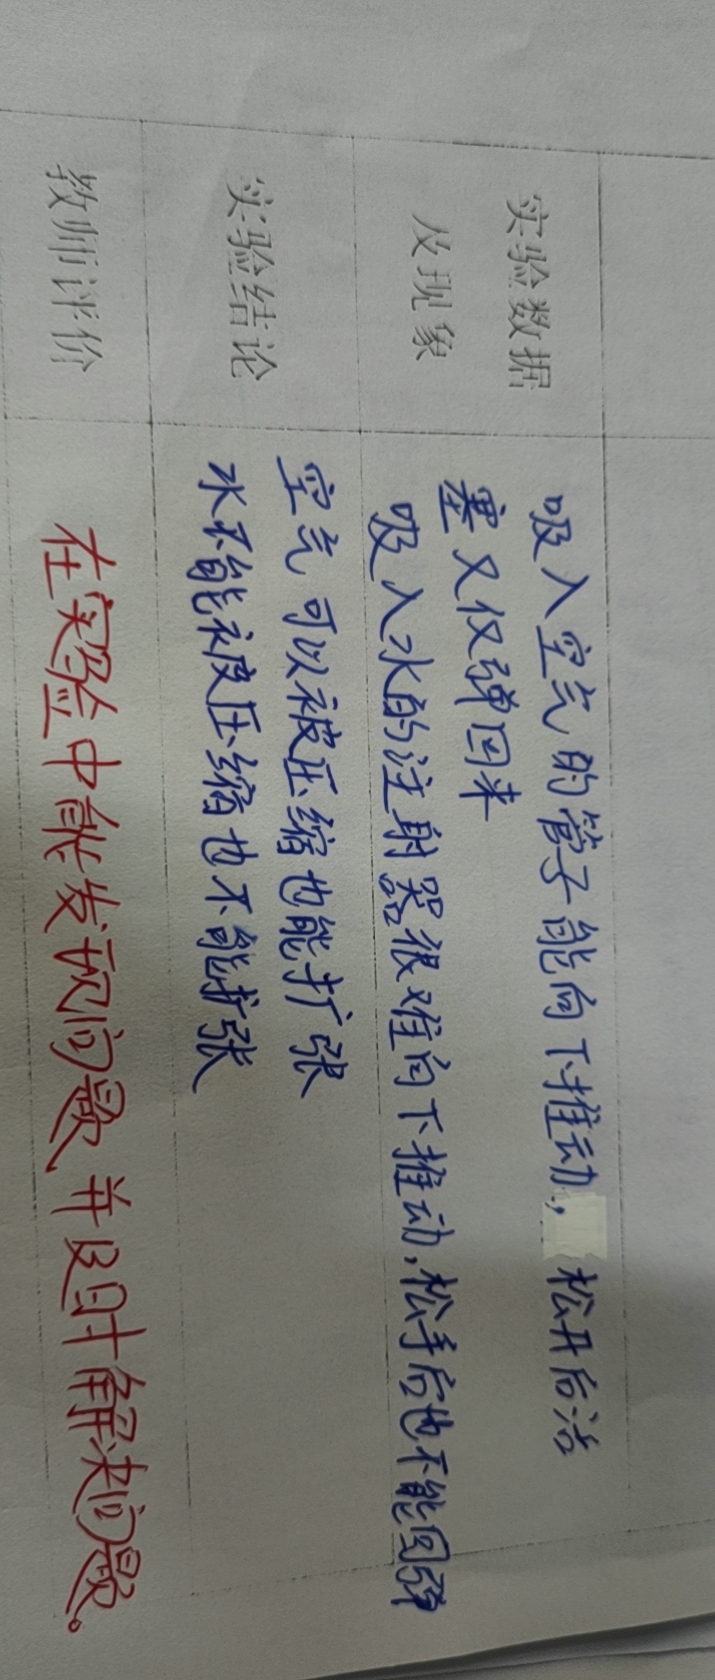 实验数据
及现象
吸入空气的管子能向下推动，松开后活
塞又仅弹回来
吸入水的注射器很难向下推动，松手后也不能回弹
实验结论
空气可以被压缩也能扩张
水不能被压缩也不能扩张
教师评价
在实验中能发现问题并及时解决问题。